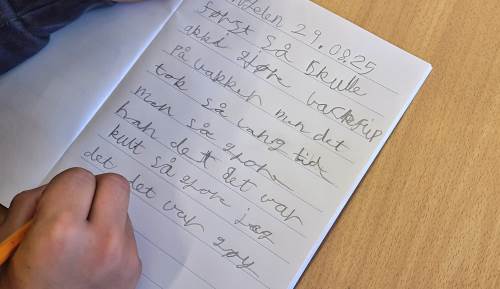 delen 29.08.25
først så skulle
akkl gjøre backflip
på bakken men det
tok så lang tid
man så gjor
han det det var
kult så gjore jeg
det det var gøy